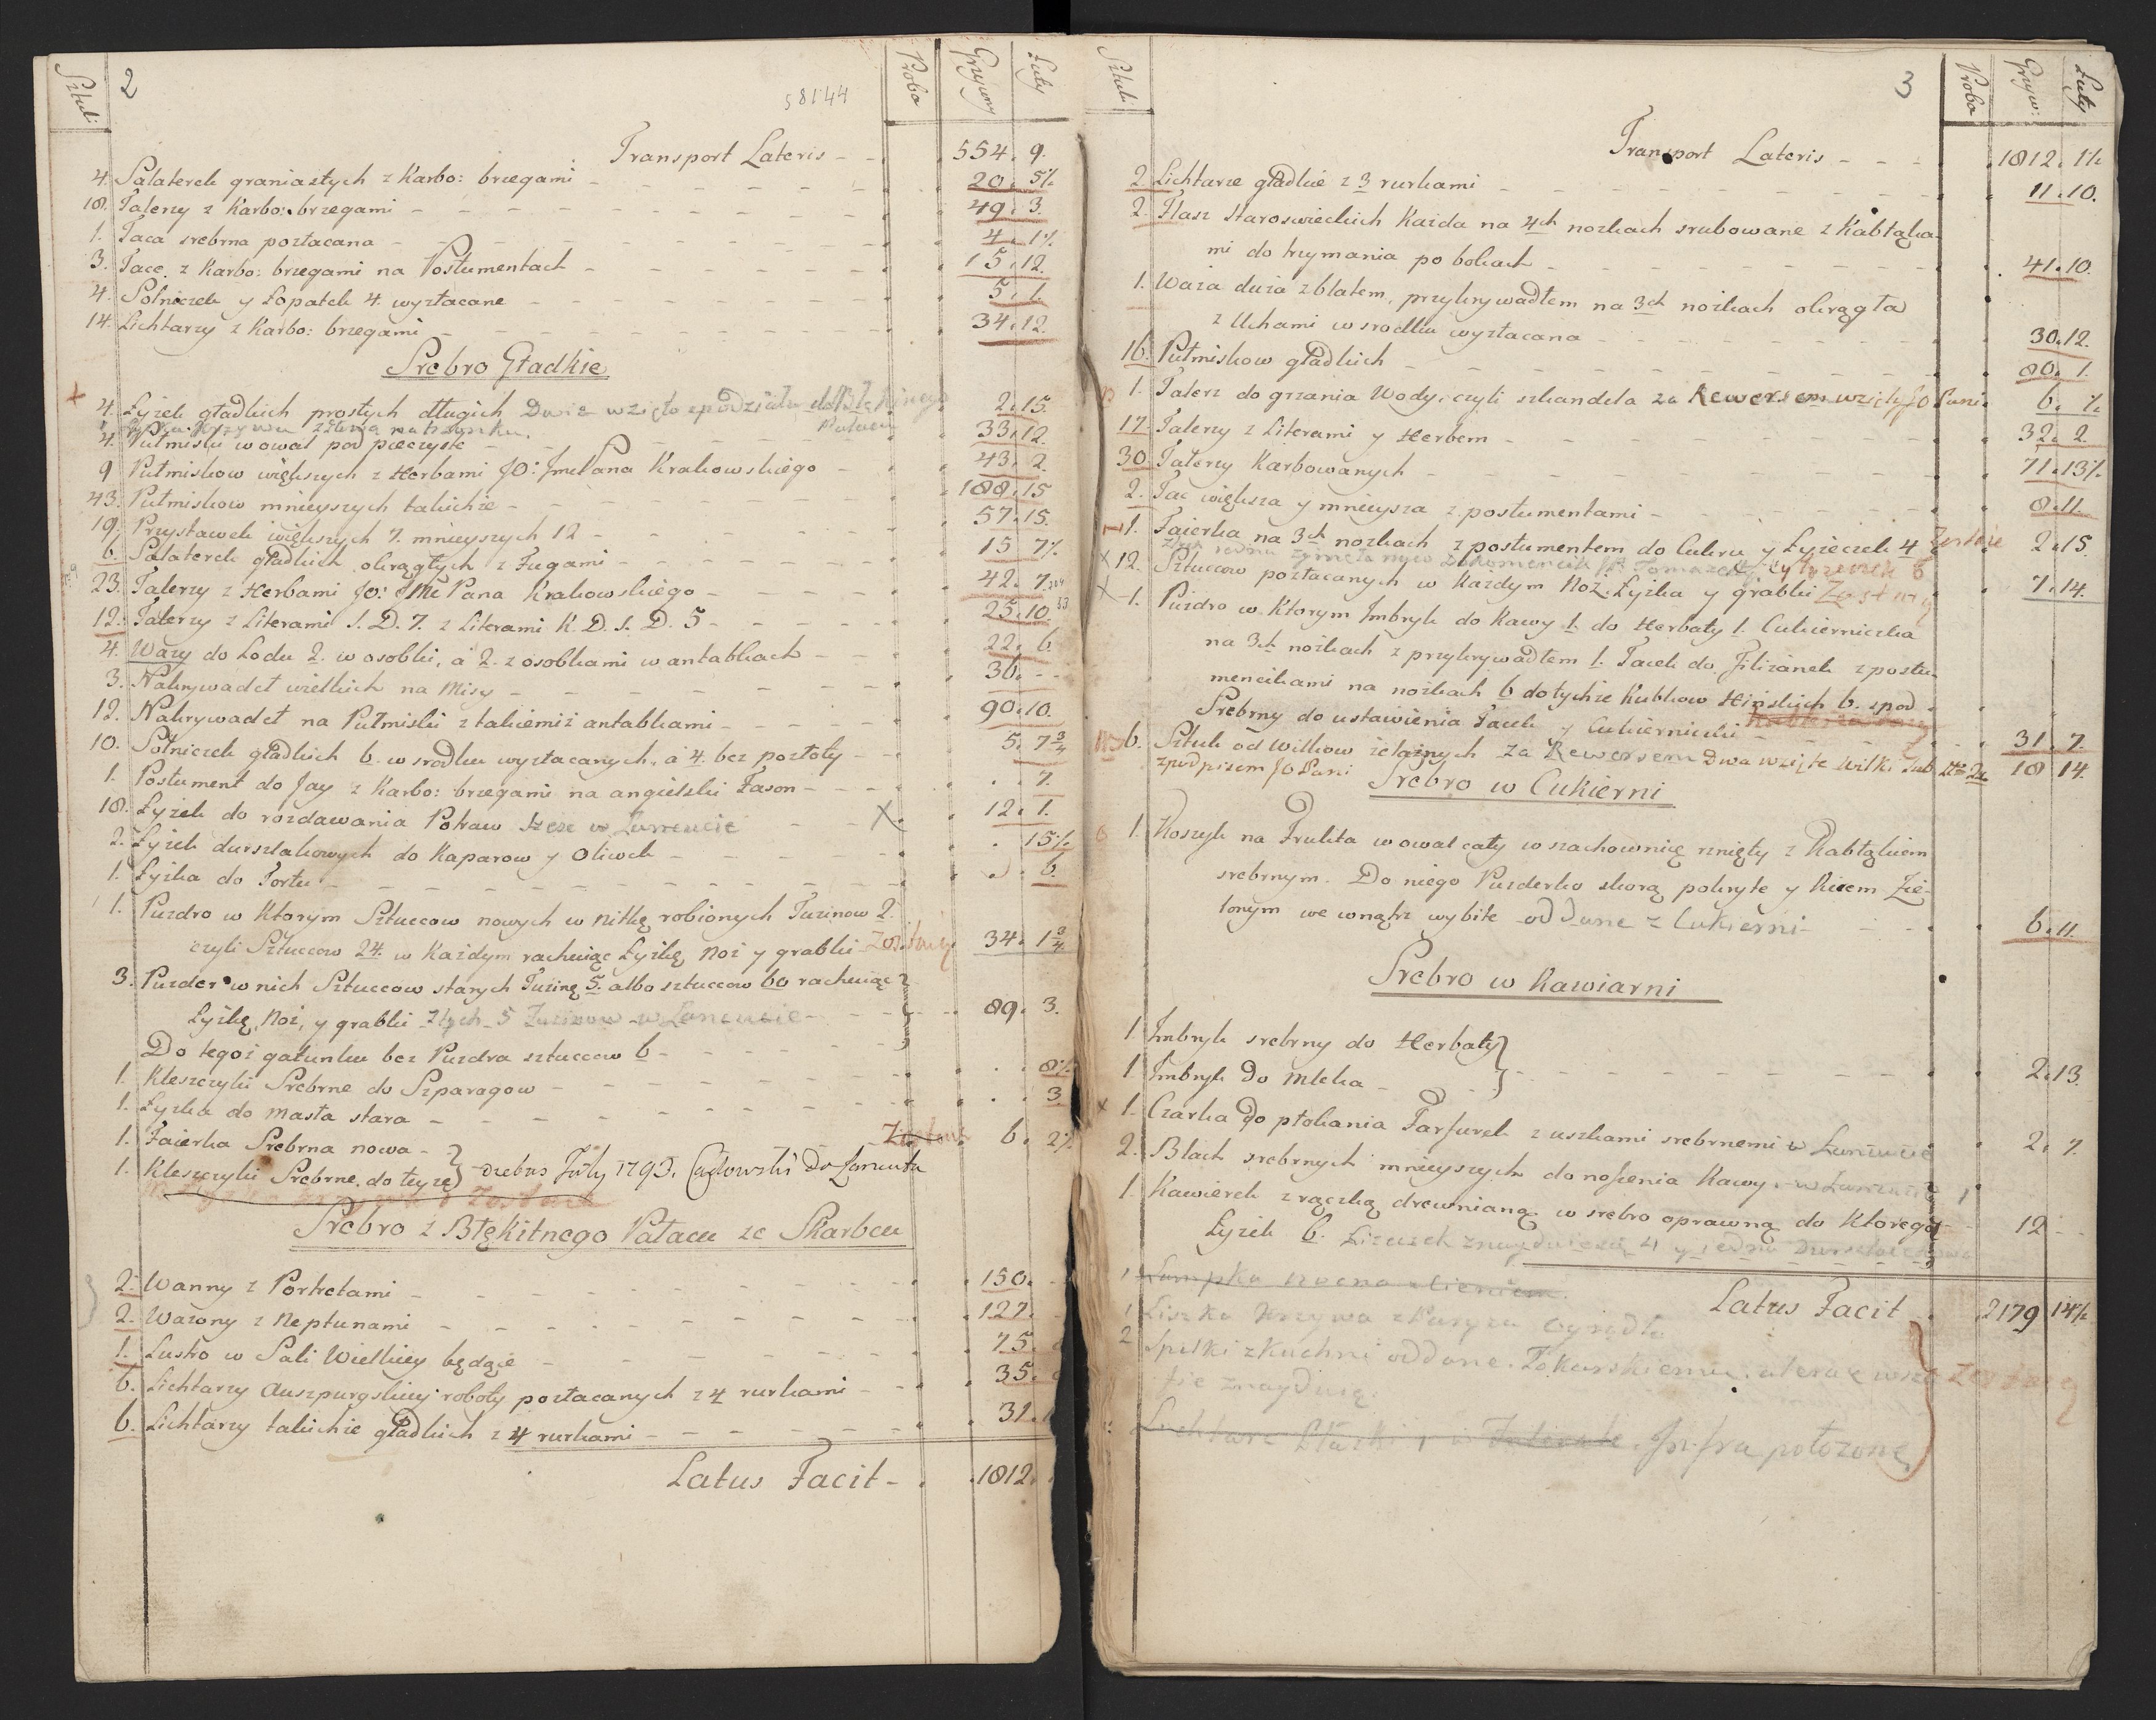 2
58144
Sztuki Proba Grzywny Łuty
Transport Lateris 554. 9.
4. Salaterek graniastych z Karbo: brzegami 20. 5½
18. Talerzy z Karbo: brzegami 49. 3.
1. Taca srebrna poztacana 4. 1½
3. Tace z Karbo: brzegami na Postumentach 15. 12.
4. Solniczek y Łopatek 4. wyztacane 5. 1.
14. Lichtarzy z Karbo: brzegami 34. 12.
Srebro Gładkie
4. Łyżek gładkich prostych długich Dwie wzięto 2. 15.
4. Putmiski w owal pod pieczyste 33. 12.
9 Putmiskow większych z Herbami JO: Jme Pana Krakowskiego 43. 2.
43. Putmiskow mnieyszych takichże 188. 15
19. Przystawek większych 7. mnieyszych 12 57. 15.
6. Salaterek gładkich okrągłych z Fugami 15 7½
23. Talerzy z Herbami Jo: JMć Pana Krakowskiego 42. 7.
12. Talerzy z Literami S. D. 7. z Literami K. D. S. D. 5 25. 10.
4. Wazy do Lodu 2. w osobki, á 2. z osobkami w antabkach 22. 6.
3. Nakrywadeł wielkich na Misy 36. --
12. Nakrywadeł na Putmiski z takiemiż antabkami 90. 10.
10. Solniczek gładkich 6. w srodku wyztacanych, á 4. bez pozłoty 5. 7¾
1. Postument do Jay z Karbo: brzegami na angielski Fason . 7.
18. Łyżek do rozdawania Potraw szesc w Łancucie X. 12. 1.
2. Łyżek durszlakowych do Kaparow y Oliwek . 15½
1. Łyżka do Tortu . 6.
1. Puzdro w Ktorym Sztuccow nowych w nitkę robionych Tuzinow 2.
czyli Sztuccow 24. w Każdym rachuiąc Łyżkę Noż y grabki Zostaią 34. 1¾
3. Puzder w nich Sztuccow starych Tuzinę 5. albo sztuccow 60 rachuiąc
Łyżkę, Noż, y grabki z tych 5 Tuzinow w Łancucie 89. 3.
Do tegoż gatunku bez Puzdra sztuccow 6
1. Kleszczyki Srebrne do Szparagow . 8½
1. Łyżka do Masła stara . 3.
1. Faierka Srebrna nowa 6. 2½
1. Kleszczyki Srebrne do teyże July 1793. do Łancuta
Srebro z Błękitnego Pałacu ze Skarbcu
2. Wanny z Portretami 150.
2. Wazony z Neptunami 127.
1. Lustro w Sali Wielkiey będące 75.
6. Lichtarzy Auszpurgskiey roboty poztacanych z 4 rurkami 35.
6. Lichtarzy takichże gładkich z 4 rurkami 31.
Latus Facit 1812.
3
Sztuki Proba Grzyw: Łuty
Transport Lateris 1812. 1½
2. Lichtarze gładkie z 3 rurkami 11. 10.
2. Flasz staroswieckich Każda na 4ch nożkach srubowane z Kabłąka-
mi do trzymania po bokach 41. 10.
1. Waza duża z blatem, przykrywadłem na 3ch nożkach okrągła
z Uchami w srodku wyztacana 30. 12.
16. Putmiskow gładkich 80. 1.
1. Talerz do grzania Wody, czyli szkandela za Rewersem wzięty JO Pani 6. ½
17. Talerzy z Literami y Herbem 32. 2.
30. Talerzy Karbowanych 71. 13½
2. Tac większa y mnieysza z postumentami 8. 11.
1. Faierka na 3ch nożkach z postumentem do Cukru y Łyżeczek 4 2. 15.
12. Sztuccow poztacanych w Każdym Noż, Łyżka y grabki 7. 14.
1. Puzdro w Ktorym Imbryk do Kawy 1. do Herbaty 1. Cukierniczka
na 3ch nożkach z przykrywadłem 1. Tacek do Filiżanek z postu-
mencikami na nożkach 6 do tychże Kubkow Hinskich 6. spod
Srebrny do ustawienia Tacek y Cukierniczki 31. 7.
6. Sztuk od Wilkow żelaznych za Rewersem Dwa wzięte Wilki 18 14.
z podpisem JO Pani
Srebro w Cukierni
1. Koszyk na Frukta w owal cały w szachownicę rznięty z Kabłąkiem
srebrnym. Do niego Puzderko skorą pokryte y Kirem Zie-
lonym we wnątrz wybite oddane z Cukierni 6. 11.
Srebro w Kawiarni
1. Imbryk srebrny do Herbaty
1. Imbryk do Mleka 2. 13.
1. Czarka do płokania Farfurek z uszkami srebrnemi w Łancucie 2. 7.
2. Blach srebrnych mnieyszych do noszenia Kawy w Łancucie
1. Kawierek z rączką drewnianą w srebro oprawną do Ktorego
Łyżek 6. 12 --
Lampka nocna
Latus Facit 2179 14½
1 Liszka Krzywa
2 Szpilki z Kuchni oddane
się znayduią.
Infra położone